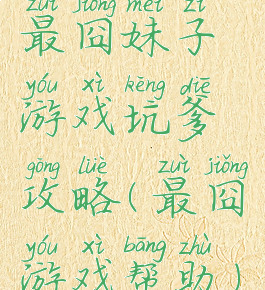 zuì jiǒng mèi zǐ
最囧妹子
yóu xì kēng diē
游戏坑爹
gōng lüè zuì jiǒng
攻略(最囧
yóu xì bāng zhù
游戏帮助)